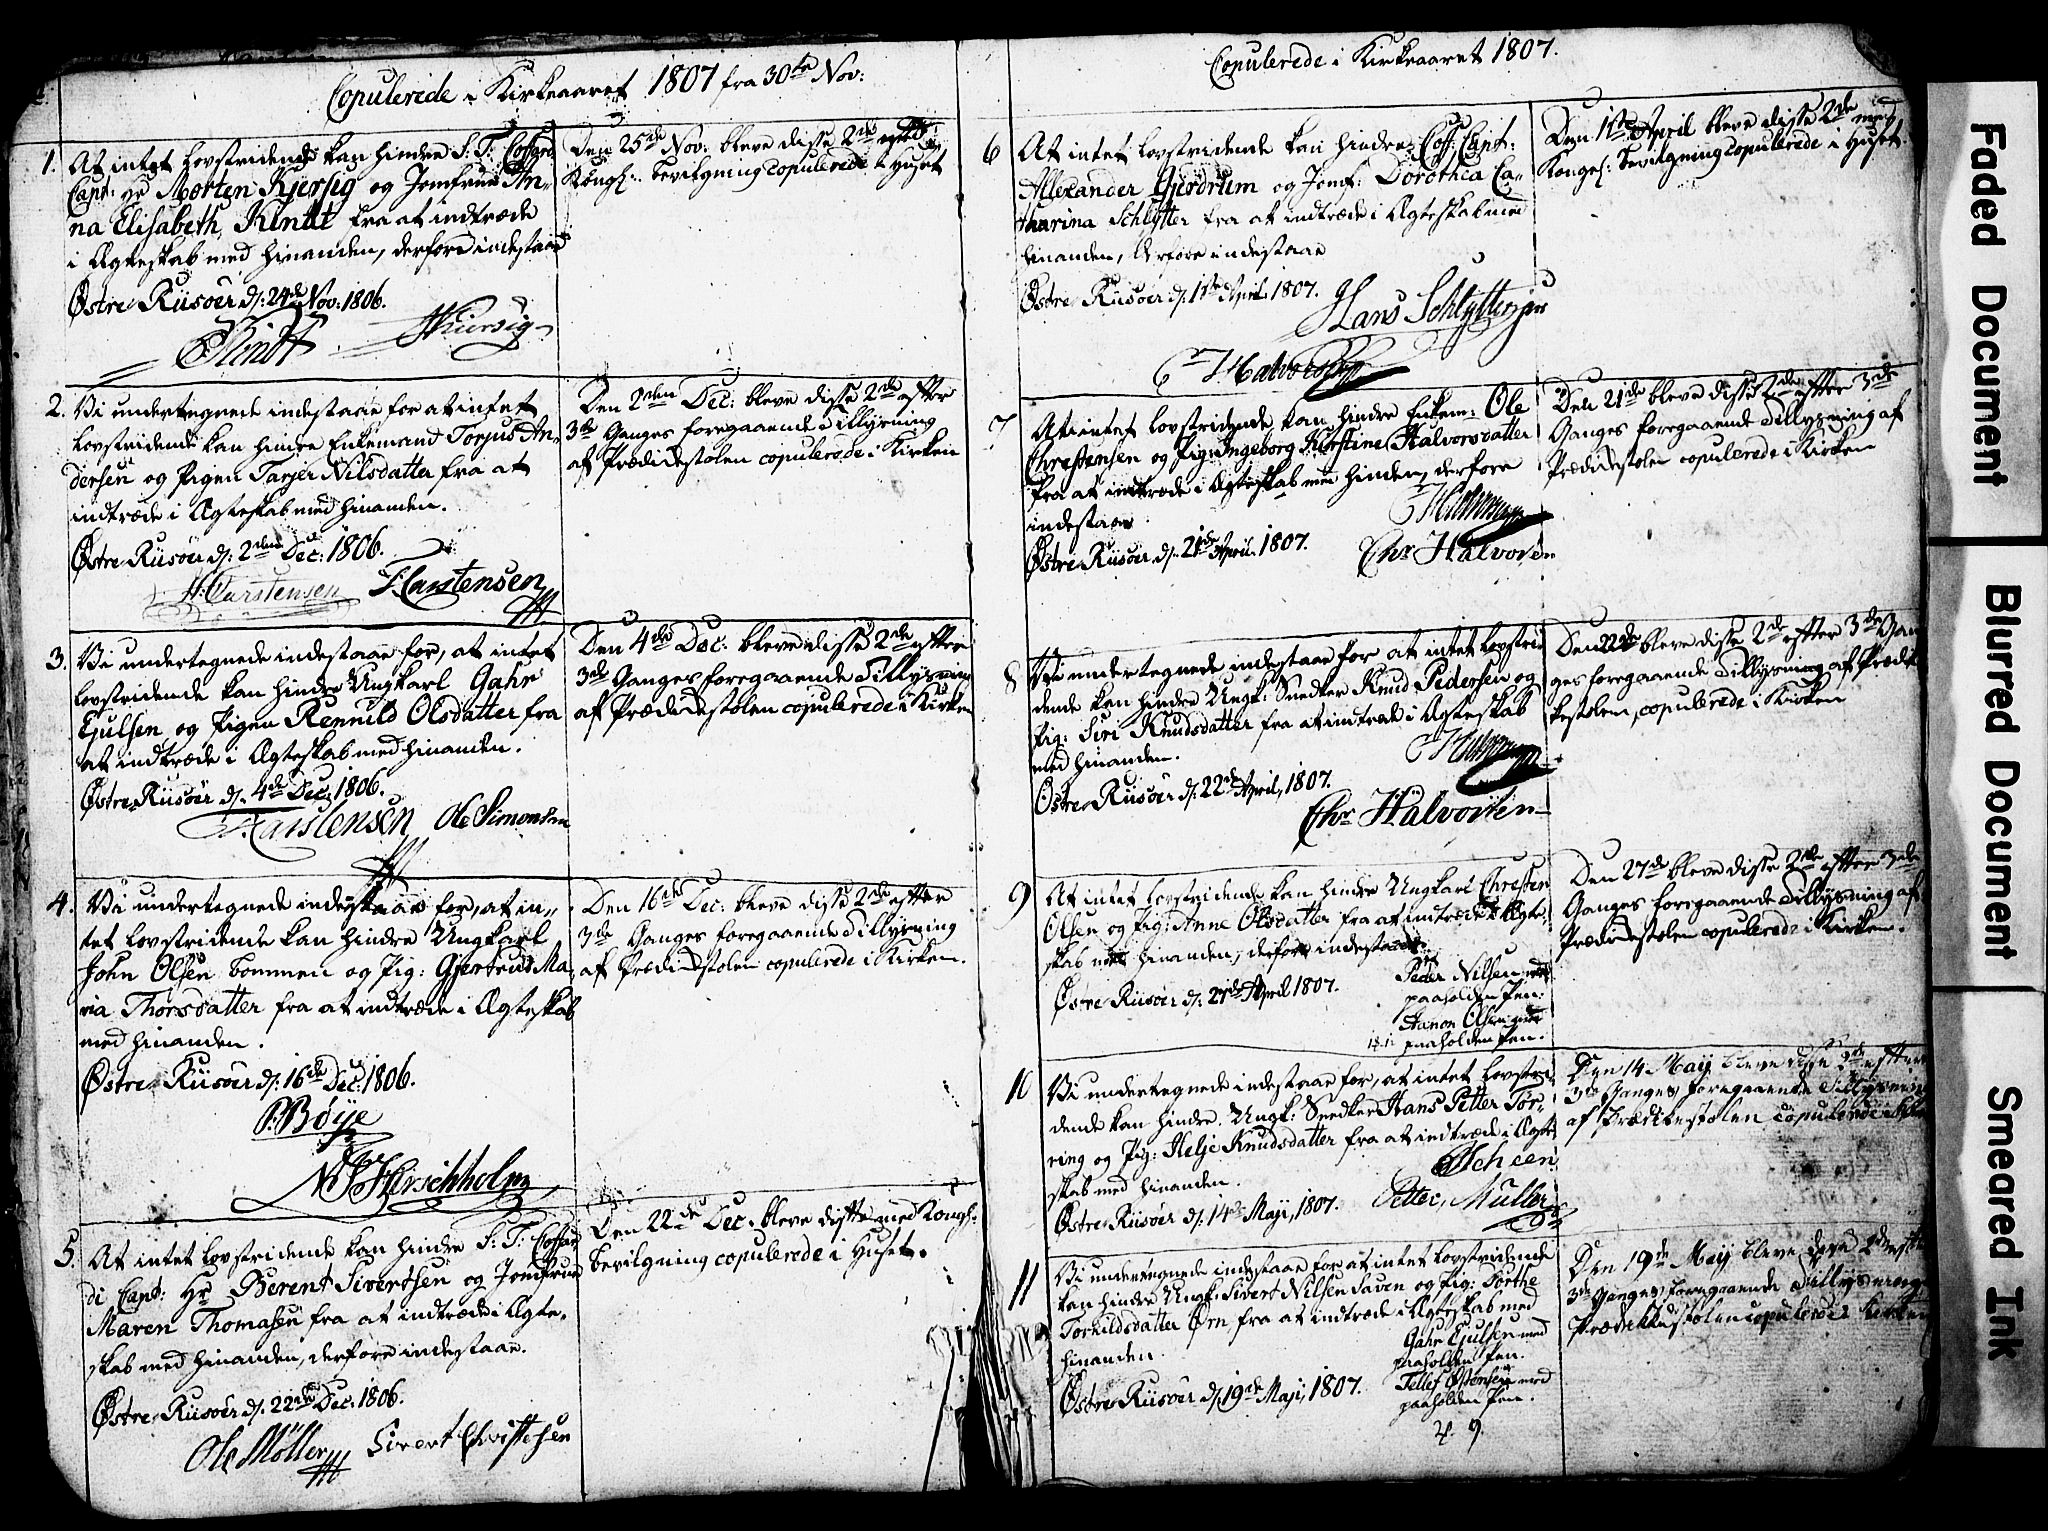 Copulerede i Kirkeaaret 1807 fra 30te Nov:
1. At intet lovstridende kan hindre S: T: Coffardi
Capt: Hr Morten Kjersig og Jomfrue An-
na Elisabeth Klindt fra at indtræde
i Ægteskab med hinanden, derfore indestaae
Østre Riisøer d: 24de Nov: 1806.
Klindt Kiersig
Den 25de Nov: bleve disse 2de efter
Kongl: bevilgning copulerede i Huset
2. Vi undertegnede indestaae for at intet
lovstridende kan hindre Enkemand Torjus An-
dersen og Pigen Tarjer Nilsdatter fra at
indtræde i Ægteskab med hinanden.
Østre Riisøer d: 2den Dec: 1806.
H. Carstensen F. Carstensen
Den 2den Dec: bleve disse 2de efter
3de Ganges foregaaende Tillysning
af Prædikestolen copulerede i Kirken
3. Vi undertegnede indestaae for, at intet
lovstridende kan hindre Ungkarl Gahr
Ejulsen og Pigen Rennild Olsdatter fra
at indtræde i Ægteskab med hinanden.
Østre Riisøer d: 4de Dec: 1806.
Carstensen Ole Simonsen
Den 4de Dec: bleve disse 2de efter
3de Ganges foregaaende Tillysning
af Prædikestolen copulerede i Kirken
4. Vi undertegnede indestaae for, at in-
tet lovstridende kan hindre Ungkarl
John Olsen Bommen og Pig: Gjertrud Ma-
ria Thorsdatter fra at indtræde i Ægteskab
med hinanden.
Østre Riisøer d: 16de Dec: 1806.
P. Bøije
N J Hirschholm
Den 16de Dec: bleve disse 2de efter
3de Ganges foregaaende Tillysning
af Prædikestolen copulerede i Kirken.
5. At intet lovstridende kan hindre S: T: Coffar-
di Capt: Hr Berent Sivertsen og Jomfrue
Maren Thomasen fra at indtræde i Ægte-
skab med hinanden, derfore indestaae.
Østre Riisøer d: 22de Dec: 1806.
Ole Møller Sivert Christensen
Den 22de Dec: bleve disse med Kongl:
bevilgning copulerede i Huset.
Copulerede i Kirkeaaret 1807.
6 At intet lovstridende kan hindre Coff: Capt:
Allexander Gjerdrum og Jomf: Dorothea Ca-
tharina Schlytter fra at indtræde i Ægteskab med
hinanden, derfore indestaae
Østre Riisøer d: 11te April 1807.
Hans Schlytter jun
Halvorsen
Den 11te April bleve disse 2de med
Kongel: bevilgning copulerede i Huset.
7 At intet lovstridende kan hindre Enkem: Ole
Christensen og Pig: Ingeborg Kirstine Halvorsdatter
fra at indtræde i Ægteskab med hinanden, derfore
indestaae
Østre Riisøer d: 21de April 1807.
Chr Halvorsen
Den 21de bleve disse 2de efter 3de
Ganges foregaaende Tillysning af
Prædikestolen copulerede i Kirken
8 Vi undertegnede indestaae for at intet lovstri-
dende kan hindre Ungk: Snedker Knud Pedersen og
Pig: Siri Knudsdatter fra at indtræde i Ægteskab
med hinanden.
Østre Riisøer d: 22de April, 1807.
Chr Halvorsen
Den 22de bleve disse 2de efter 3de Gan-
ges foregaaende Tillysning af Prædi-
kestolen, copulerede i Kirken
9 At intet lovstridende kan hindre Ungkarl Christen
Olsen og Pig: Anne Olsdatter fra at indtræde i Ægte-
skab med hinanden, derfore indestaae.
Østre Riisøer d: 27de April 1807.
Peder Nilsen med
paaholden Pen.
Aanon Olsen med
paaholden Pen.
Den 27de bleve disse 2de efter 3de
Ganges foregaaende Tillysning af
Prædikestolen copulerede i Kirken.
10 Vi undertegnede indestaae for, at intet lovstri-
dende kan hindre Ungk: Snedker Hans Petter Tør-
ring og Pig: Helje Knudsdatter fra at indtræde i Ægte-
skab med hinanden.
Østre Riisøer d: 14de Maji, 1807.
Scheen
Petter Müller
Den 14 Maij bleve disse 2de efter
3de Ganges foregaaende Tillysning
af Prædikestolen copulerede i Kirken
11 Vi undertegnede indestaae for at intet lovstridende
kan hindre Ungk: Sivert Nilsen Saven og Pig: Torthe
Torkildsdatter Örn fra at indtræde i Ægteskab med
hinanden.
Østre Riisøer d: 19de Maji, 1807.
Gahr Ejulsen med
paaholden Pen.
Tellef Østensen med
paaholden Pen.
Den 19de Maij bleve disse 2de efter
3de Ganges foregaaende Tillysning
Prædikkestolen copulerede i Kirken
Faded Document
Blurred Document
Smeared Ink